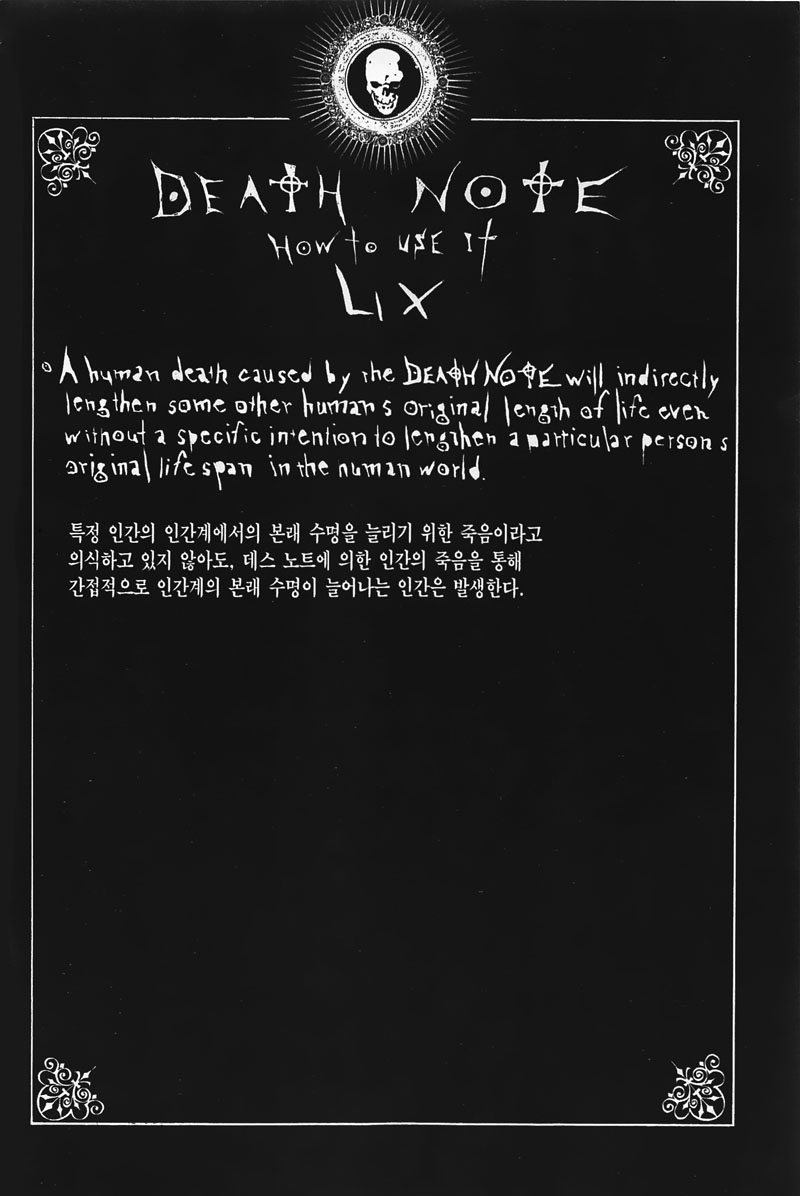 DEATH NOTE
HOW to USE It
LIX
A human death caused by the DEATH NOTE will indirectly
lengthen some other humans original length of life even
without a specific intention to lengthen a particular persons
original life span in the human world.
특정 인간의 인간계에서의 본래 수명을 늘리기 위한 죽음이라고
의식하고 있지 않아도, 데스 노트에 의한 인간의 죽음을 통해
간접적으로 인간계의 본래 수명이 늘어나는 인간은 발생한다.